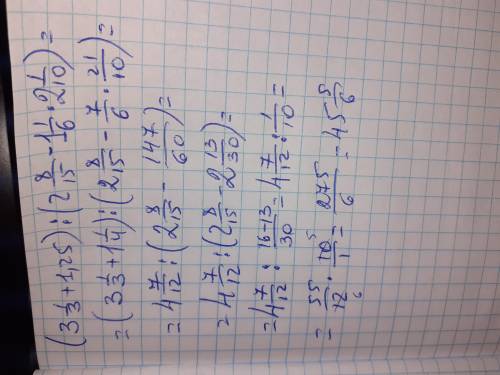 (3 1/3 + 1,25) : (2 8/15 - 1 1/6 · 2 1/10) =
= (3 1/3 + 1 1/4) : (2 8/15 - 7/6 · 21/10) =
= 4 7/12 : (2 8/15 - 147/60) =
= 4 7/12 : (2 8/15 - 2 13/30) =
= 4 7/12 : 16-13/30 = 4 7/12 : 1/10 =
= 55/12 · 10/1 = 275/6 = 45 5/6